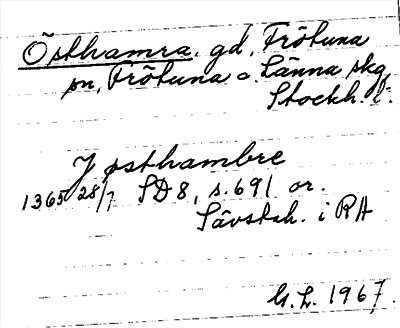 Östhamra, gd, Frötuna
sn, Frötuna o. Länna skg,
Stockh. l.
J osthambre
1365 28/7 SD 8, s. 691 or.
Sävstah. i RA
G. L. 1967.